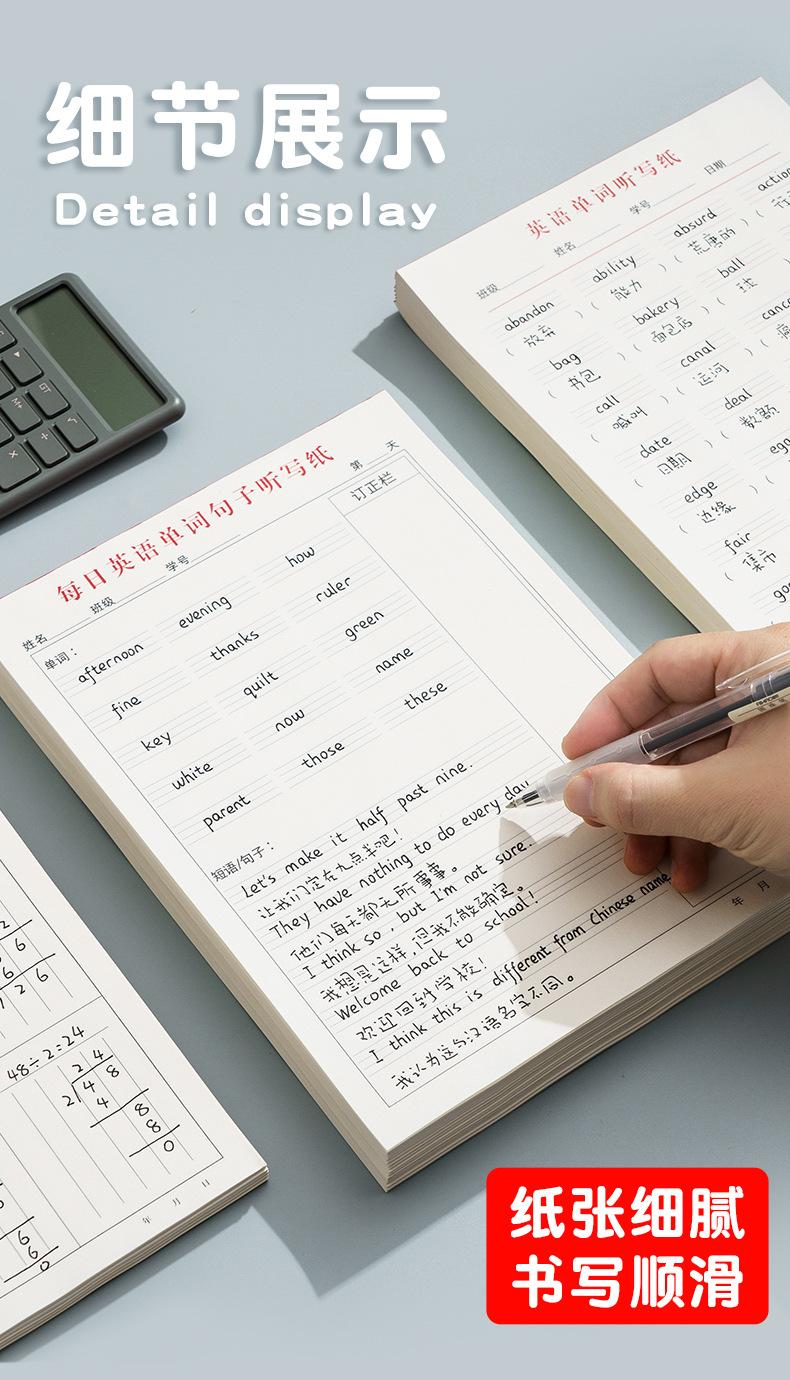 细节展示
Detail display
英语单词听写纸
班级 姓名 学号 日期
abandon ability absurd action
( 放弃 ) ( 能力 ) ( 荒唐的 )
bag bakery ball
( 书包 ) ( 面包店 ) ( 球 )
call canal
( 喊叫 ) ( 运河 )
date deal
( 日期 ) ( 数额
edge
( 边缘 )
fair
( 集市
每日英语单词句子听写纸
姓名 班级 学号 第 天
单词：
订正栏
afternoon evening how
fine thanks ruler
key quilt green
white now name
parent those these
短语/句子：
Let's make it half past nine.
让我们定在九点半吧！
They have nothing to do every day
他们每天都无所事事。
I think so, but I'm not sure.
我想是这样，但我不能确定。
Welcome back to school!
欢迎回到学校！
I think this is different from Chinese name
我认为这与汉语名字不同。
年 月
48÷2=24
2 4
2 4 8
4
8
8
0
年 月 日
纸张细腻
书写顺滑